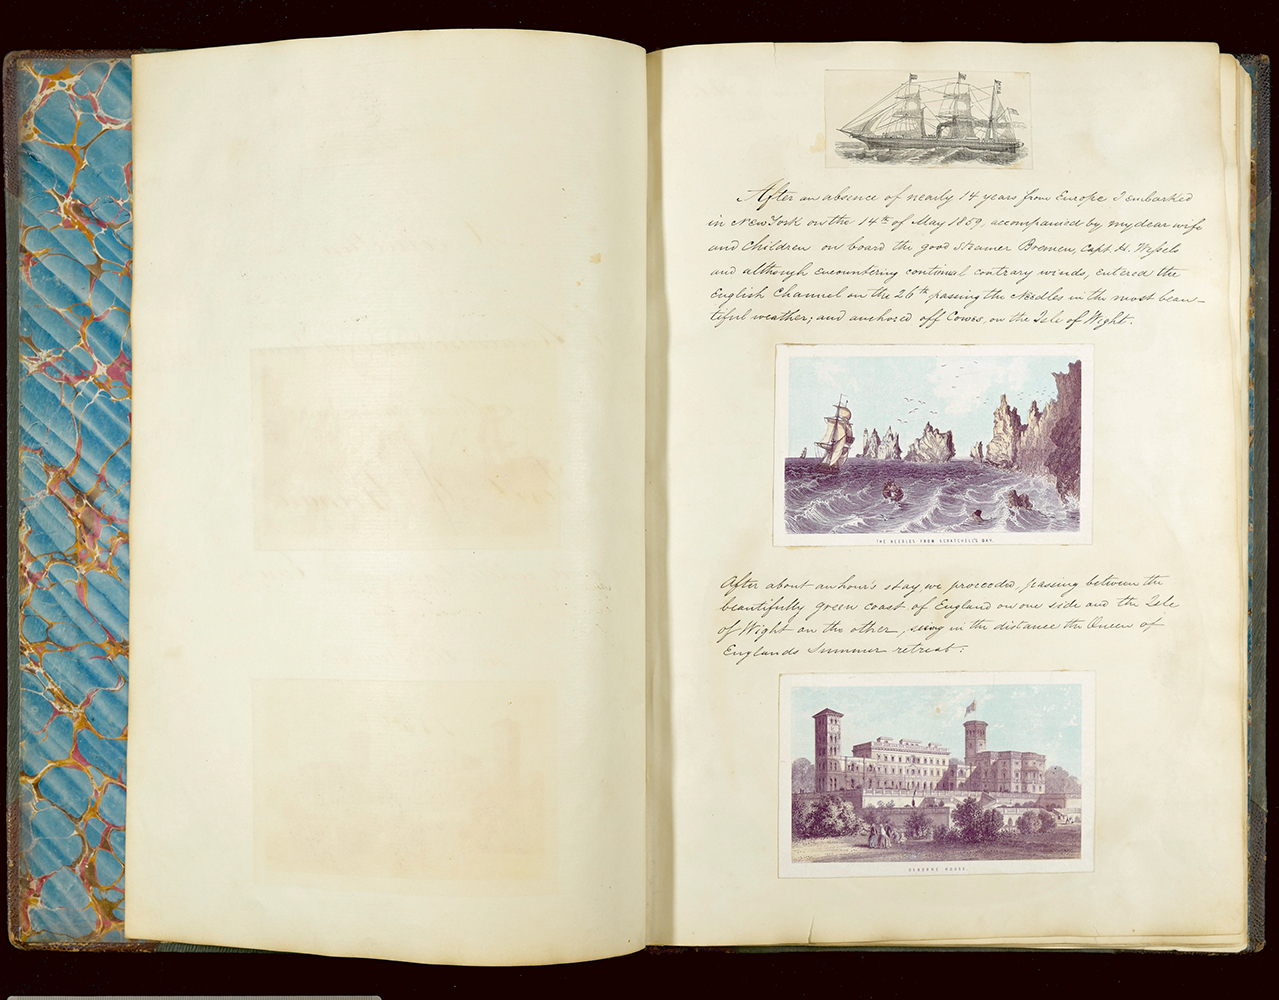 After an absence of nearly 14 years from Europe I embarked
in New York on the 14th of May 1859, accompanied by my dear wife
and Children on board the good Steamer Bremen, Capt. H. Wessels
and although encountering continual contrary winds, entered the
English Channel on the 26th passing the Needles in the most beau-
tiful weather; and anchored off Cowes, on the Isle of Wight.
THE NEEDLES FROM SCRATCHELL'S BAY.
After about an hour's stay, we proceeded, passing between the
beautifully green coast of England on one side and the Isle
of Wight on the other, seeing in the distance the Queen of
Englands Summer retreat:
OSBORNE HOUSE.